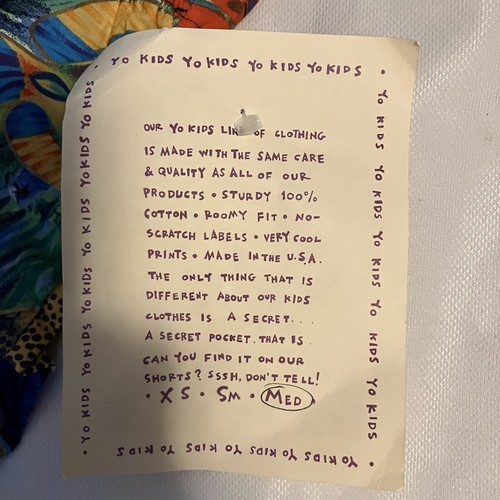 • YO KIDS YO KIDS YO KIDS YO KIDS •
YO KIDS YO KIDS YO KIDS YO KIDS YO KIDS •
YO KIDS YO KIDS YO KIDS YO KIDS
• YO KIDS YO KIDS YO KIDS YO KIDS YO KIDS
OUR YO KIDS LINE OF CLOTHING
IS MADE WITH THE SAME CARE
& QUALITY AS ALL OF OUR
PRODUCTS • STURDY 100%
COTTON • ROOMY FIT • NO-
SCRATCH LABELS • VERY COOL
PRINTS • MADE IN THE U.S.A.
THE ONLY THING THAT IS
DIFFERENT ABOUT OUR KIDS
CLOTHES IS A SECRET...
A SECRET POCKET. THAT IS.
CAN YOU FIND IT ON OUR
SHORTS? SSSH, DON'T TELL!
• XS • SM • MED •